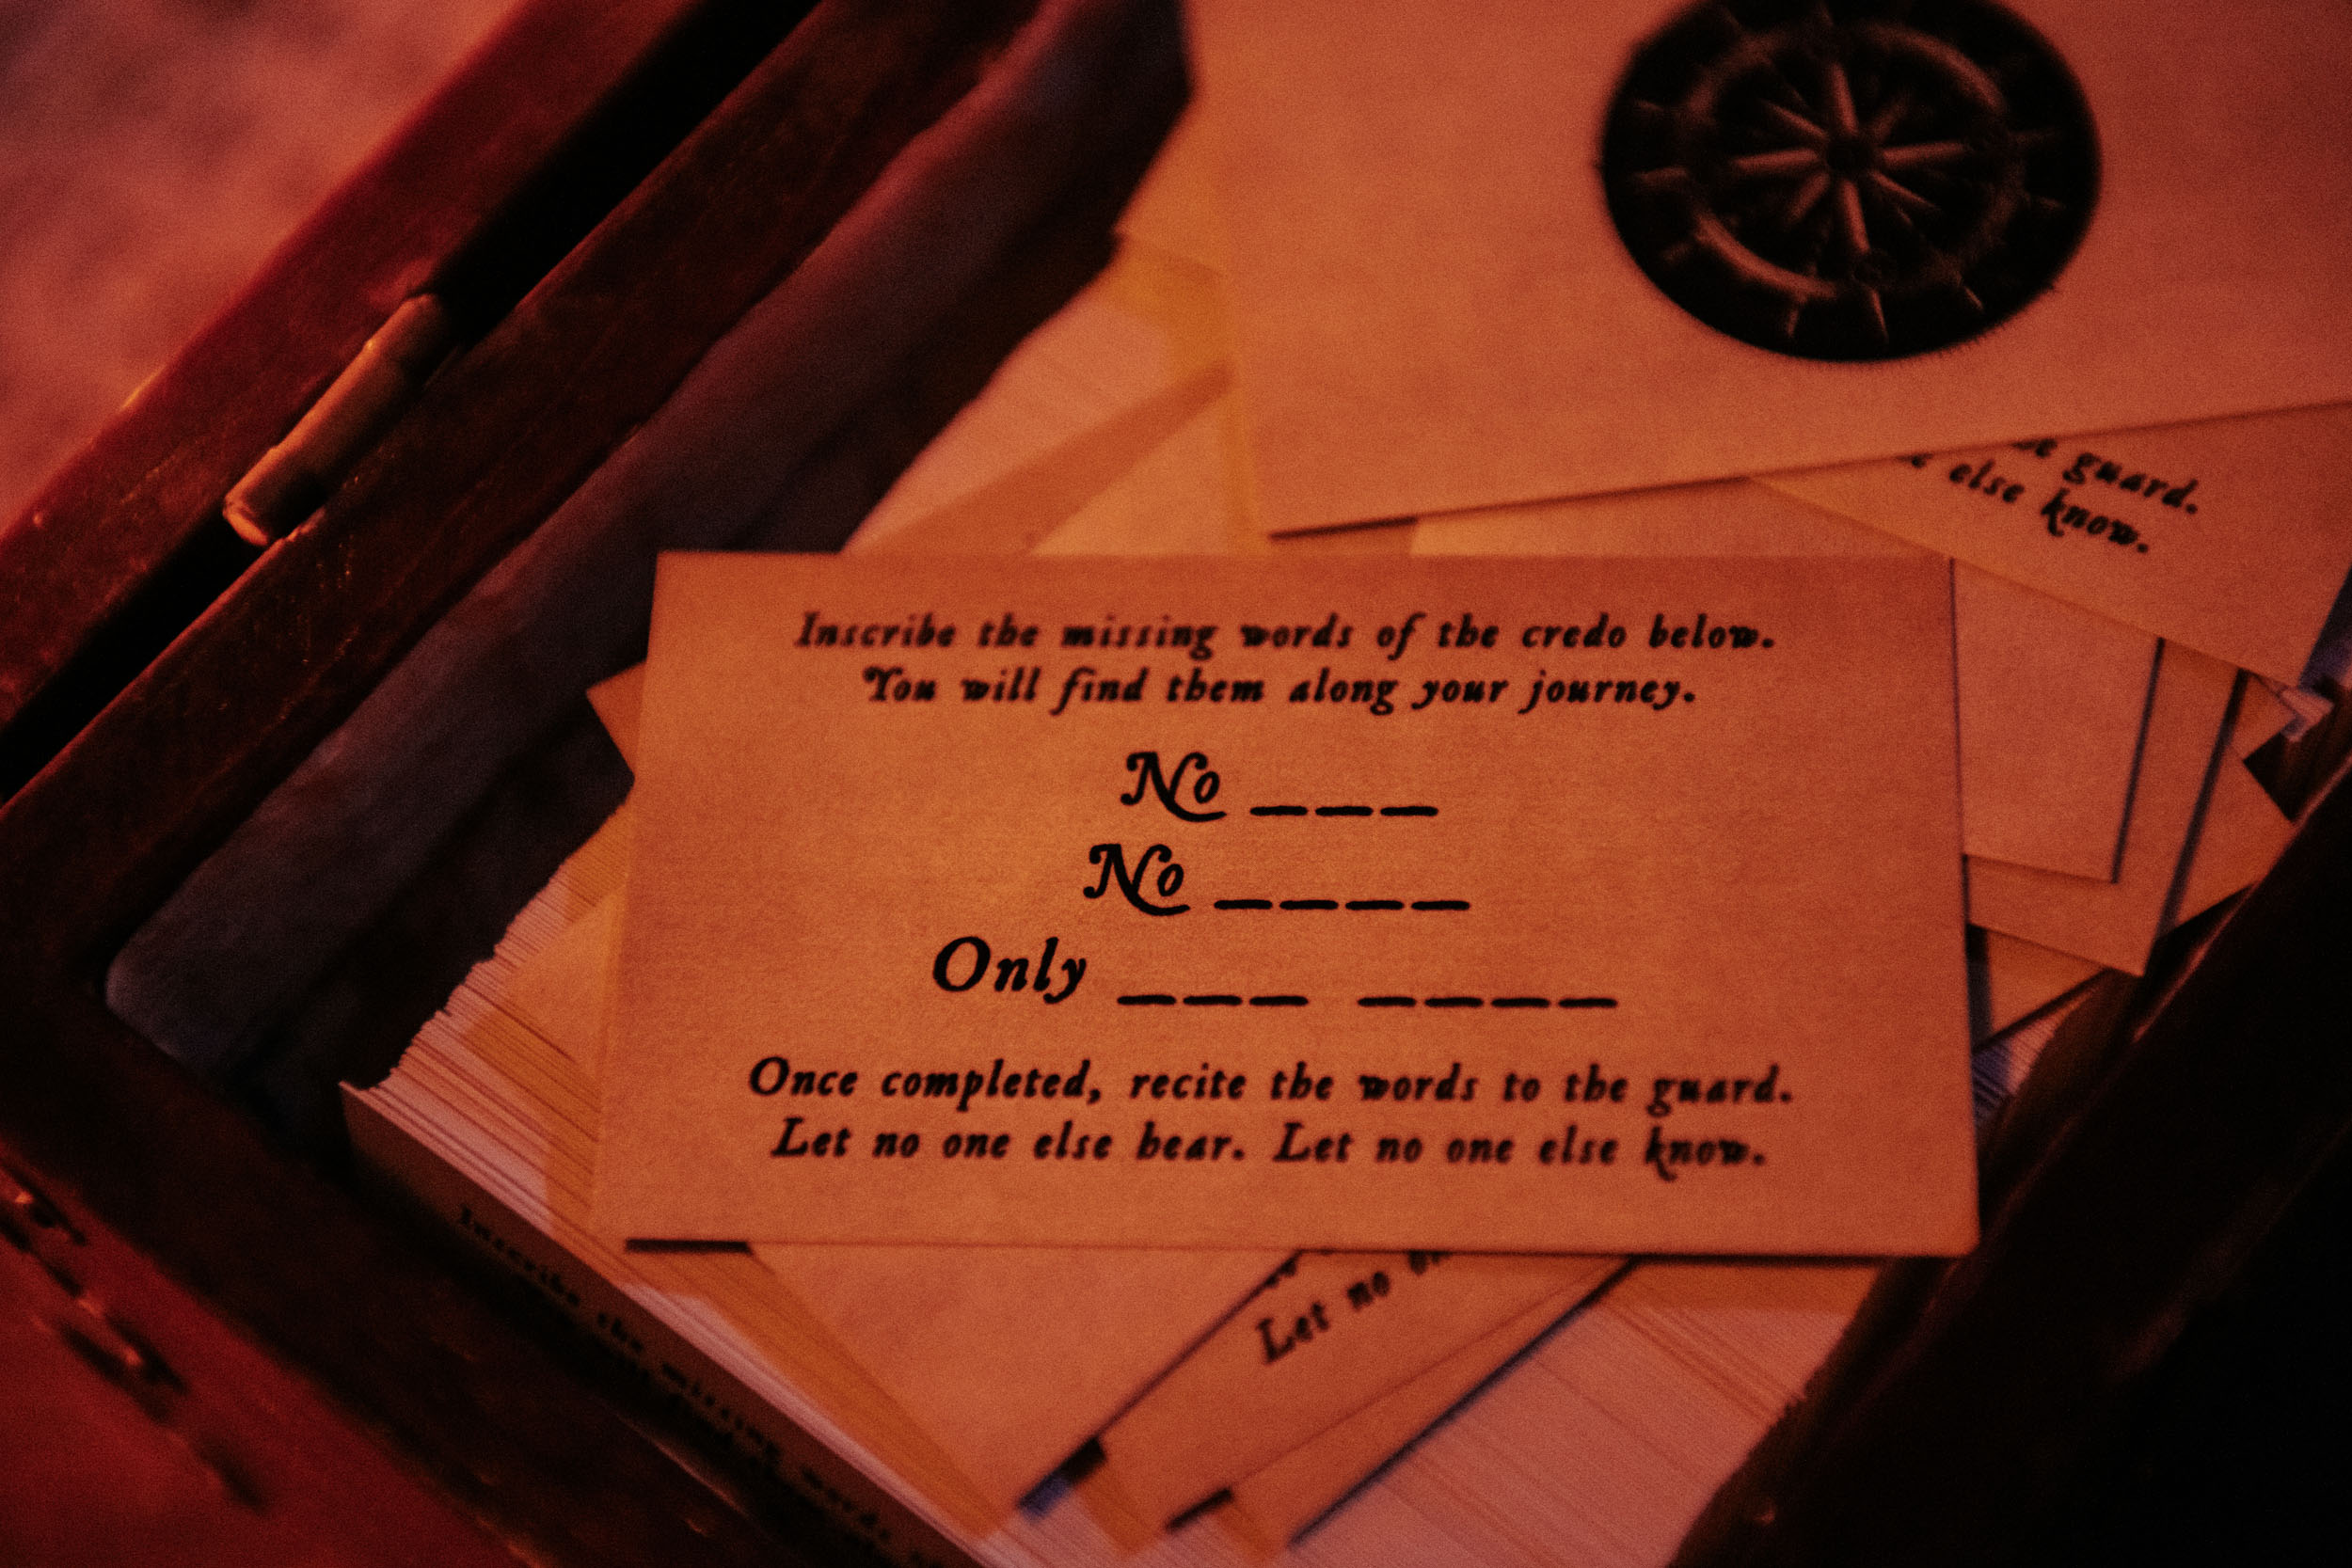 e guard.
e else know.
Inscribe the missing words of the credo below.
You will find them along your journey.
No _ _ _
No _ _ _ _
Only _ _ _ _ _ _ _
Once completed, recite the words to the guard.
Let no one else hear. Let no one else know.
Let no on
Inscribe the missing words